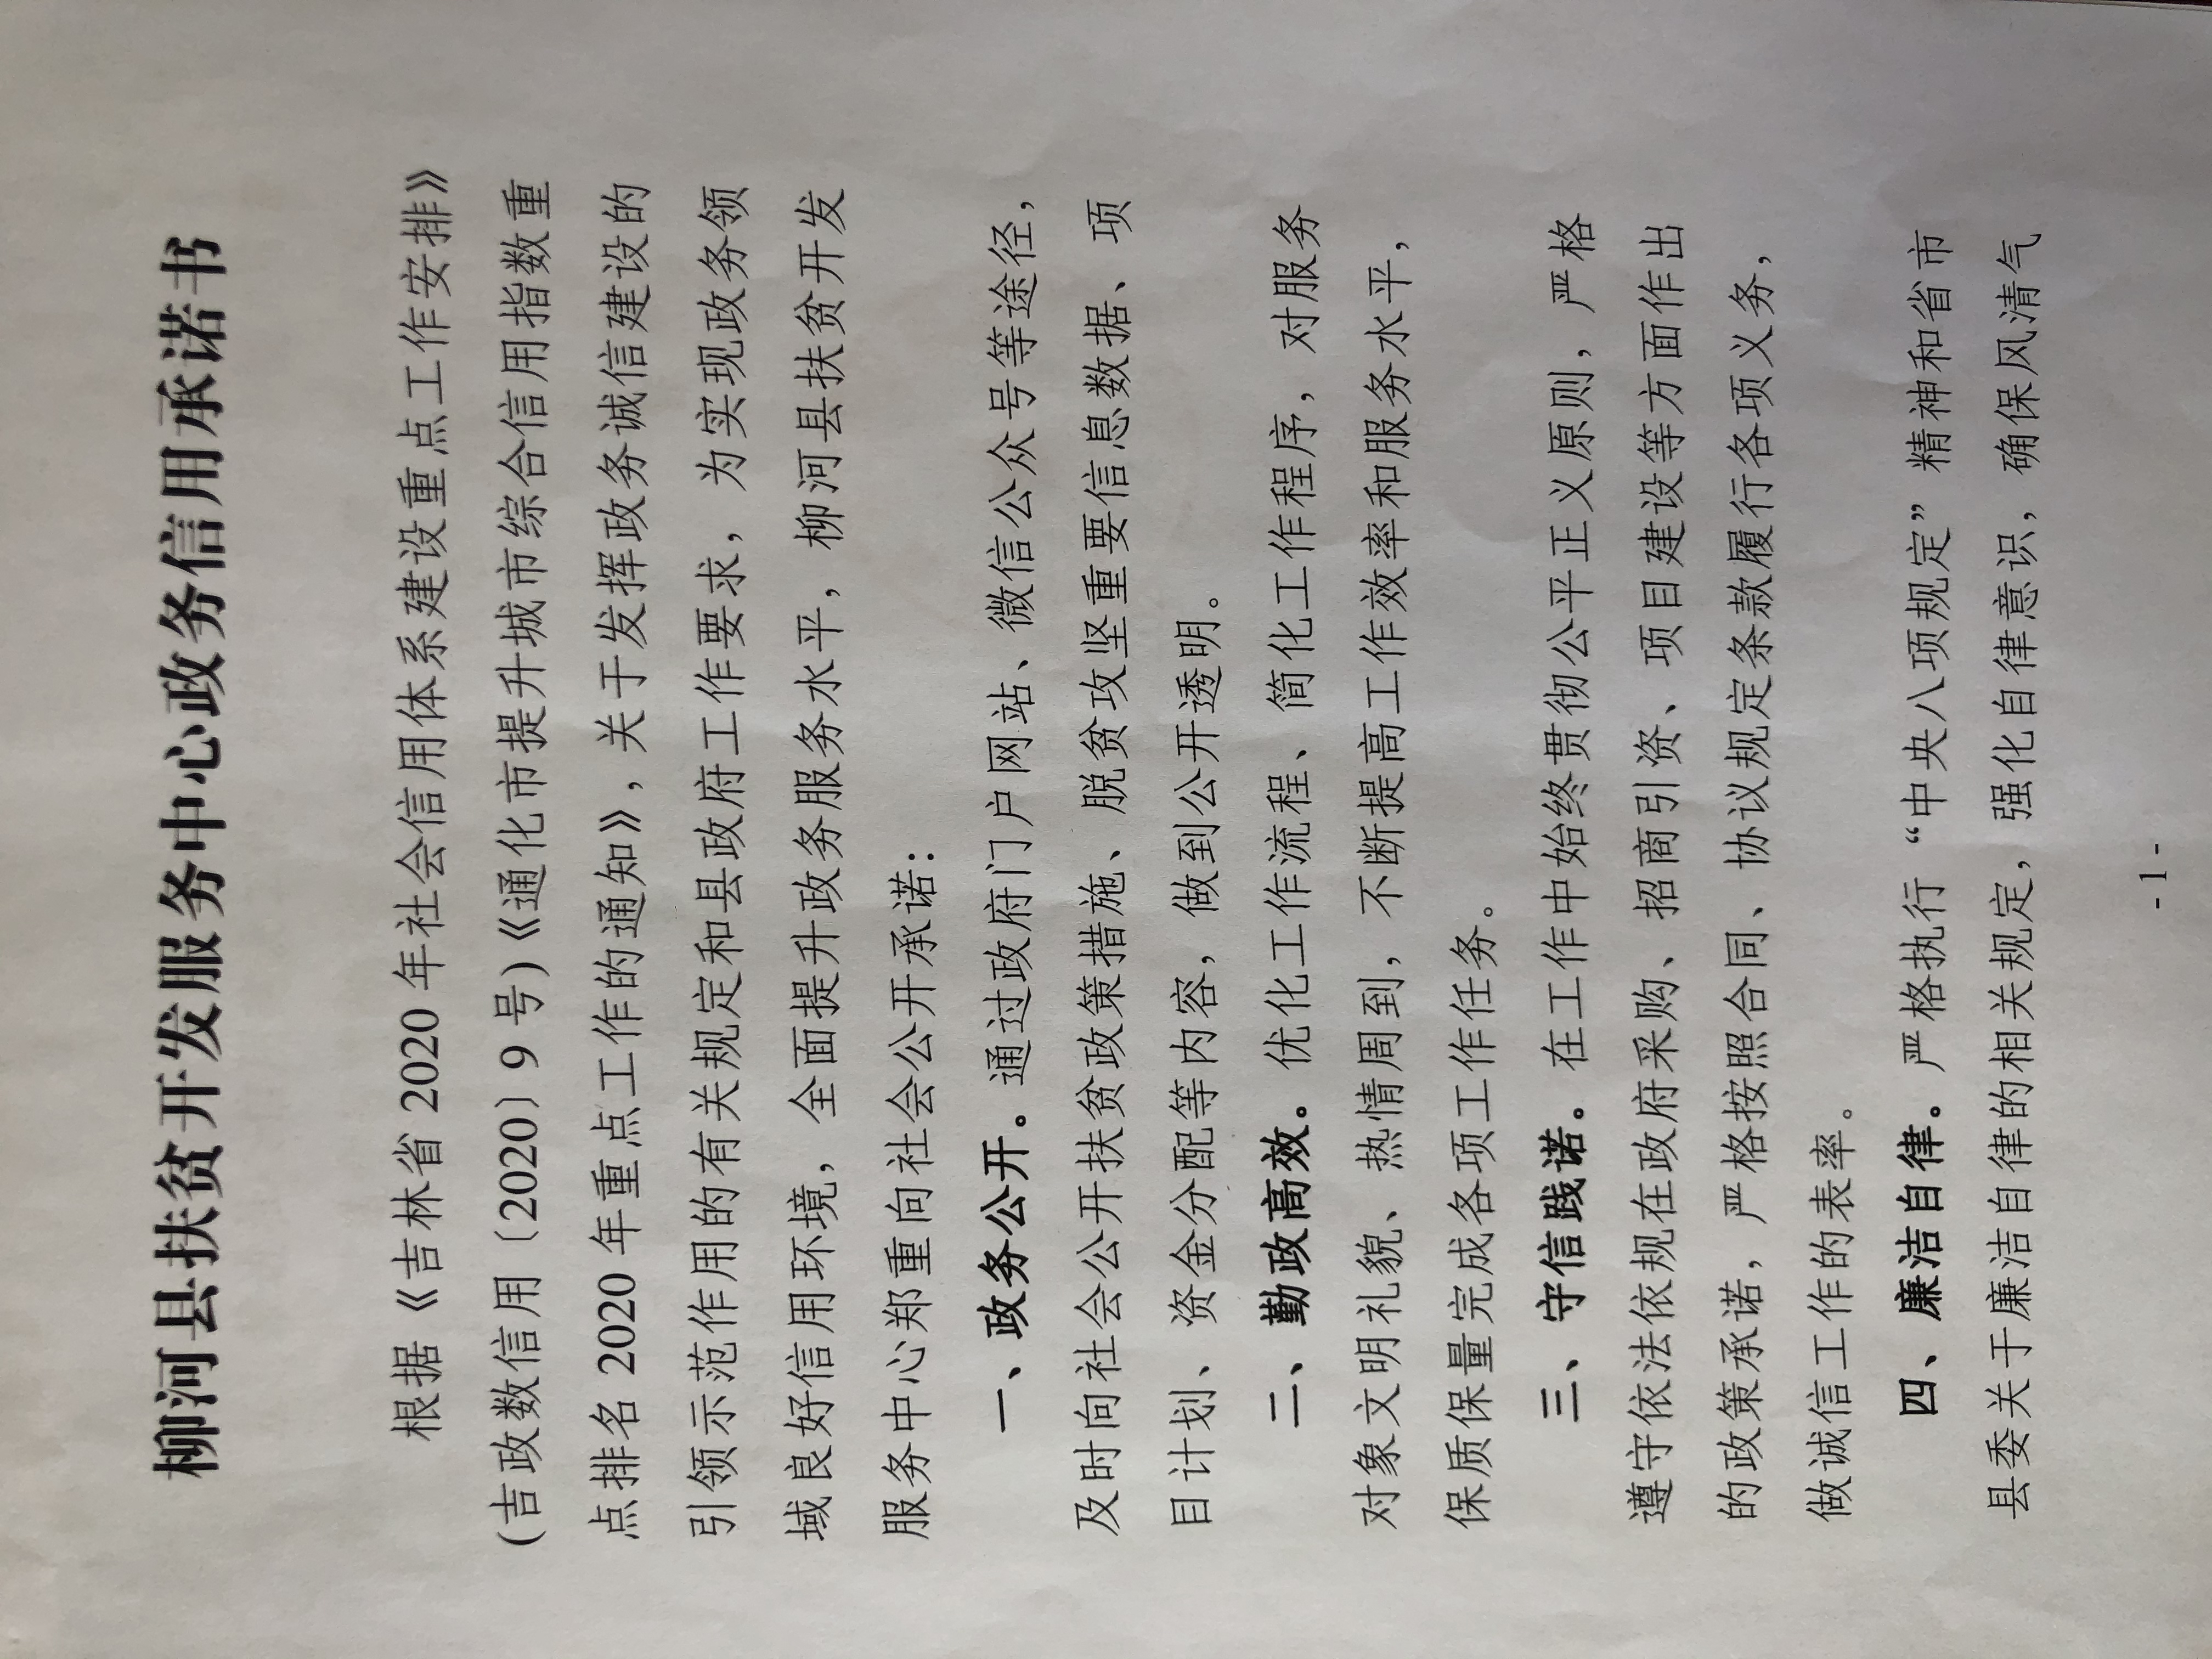 柳河县扶贫开发服务中心政务信用承诺书
根据《吉林省 2020 年社会信用体系建设重点工作安排》
(吉政数信用〔2020〕9 号)《通化市提升城市综合信用指数重
点排名 2020 年重点工作的通知》,关于发挥政务诚信建设的
引领示范作用的有关规定和县政府工作要求，为实现政务领
域良好信用环境，全面提升政务服务水平，柳河县扶贫开发
服务中心郑重向社会公开承诺：
一、政务公开。通过政府门户网站、微信公众号等途径，
及时向社会公开扶贫政策措施、脱贫攻坚重要信息数据、项
目计划、资金分配等内容，做到公开透明。
二、勤政高效。优化工作流程、简化工作程序，对服务
对象文明礼貌、热情周到，不断提高工作效率和服务水平，
保质保量完成各项工作任务。
三、守信践诺。在工作中始终贯彻公平正义原则，严格
遵守依法依规在政府采购、招商引资、项目建设等方面作出
的政策承诺，严格按照合同、协议规定条款履行各项义务，
做诚信工作的表率。
四、廉洁自律。严格执行“中央八项规定”精神和省市
县委关于廉洁自律的相关规定，强化自律意识，确保风清气
- 1 -